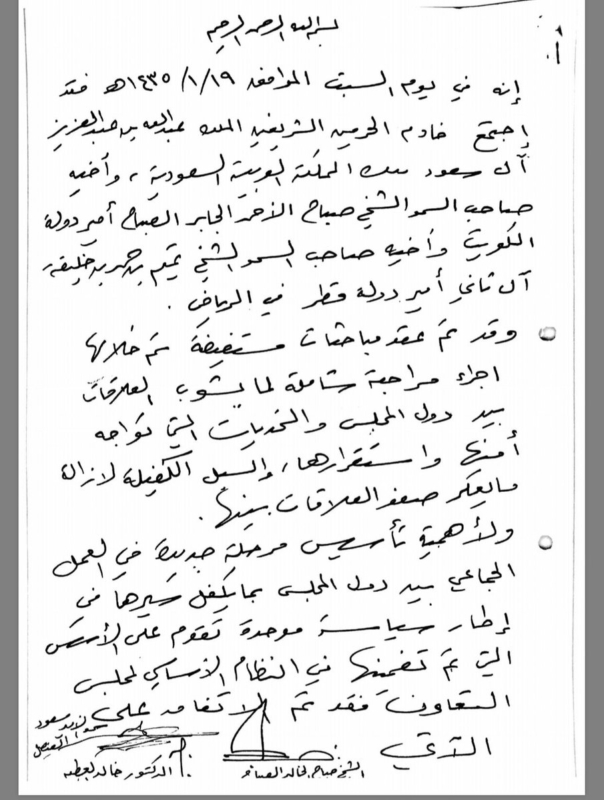 بسم الله الرحمن الرحيم
إنه في يوم السبت الموافق ١٤٣٥/١/١٩هـ فقد
إجتمع خادم الحرمين الشريفين الملك عبدالله بن عبدالعزيز
آل سعود ملك المملكة العربية السعودية، وأخيه
صاحب السمو الشيخ صباح الأحمد الجابر الصباح أمير دولة
الكويت وأخيه صاحب السمو الشيخ تميم بن حمد بن خليفه
آل ثاني أمير دولة قطر في الرياض.
وقد تم عقد مباحثات مستفيضة تم خلالها
اجراء مراجعة شاملة لما يشوب العلاقات
بين دول المجلس والتحديات التي تواجه
أمنها واستقرارها، والسبل الكفيلة لازالة
مايعكر صفو العلاقات بينها.
ولأهمية تأسيس مرحلة جديدة في العمل
الجماعي بين دول المجلس بما يكفل سيرها في
إطار سياسة موحدة تقوم على الأسس
التي تم تضمينها في النظام الأساسي لمجلس
التعاون فقد تم الاتفاق على
الآتي
سعود الفيصل
الشيخ صباح الخالد الصباح
الدكتور خالد العطيه